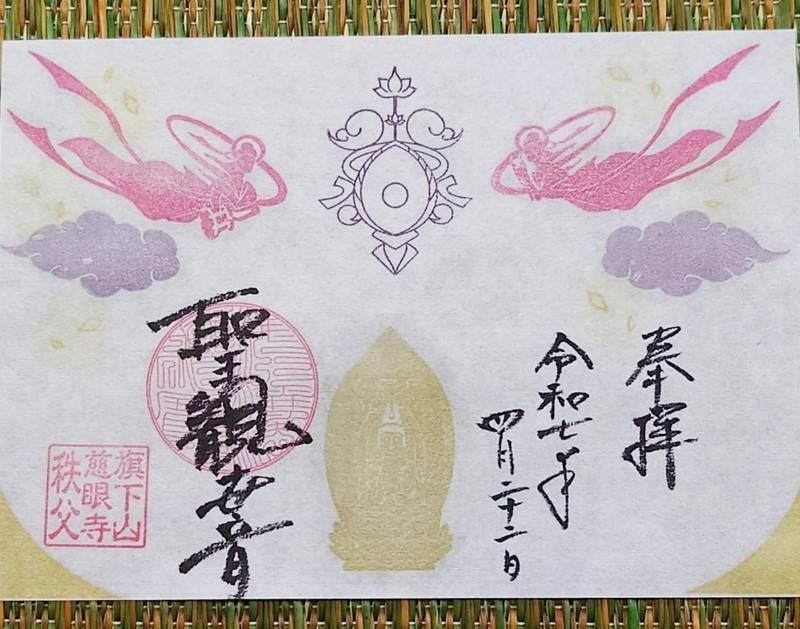 奉拝
令和七年
四月二十二日
聖觀世音
旗下山
慈眼寺
秩父